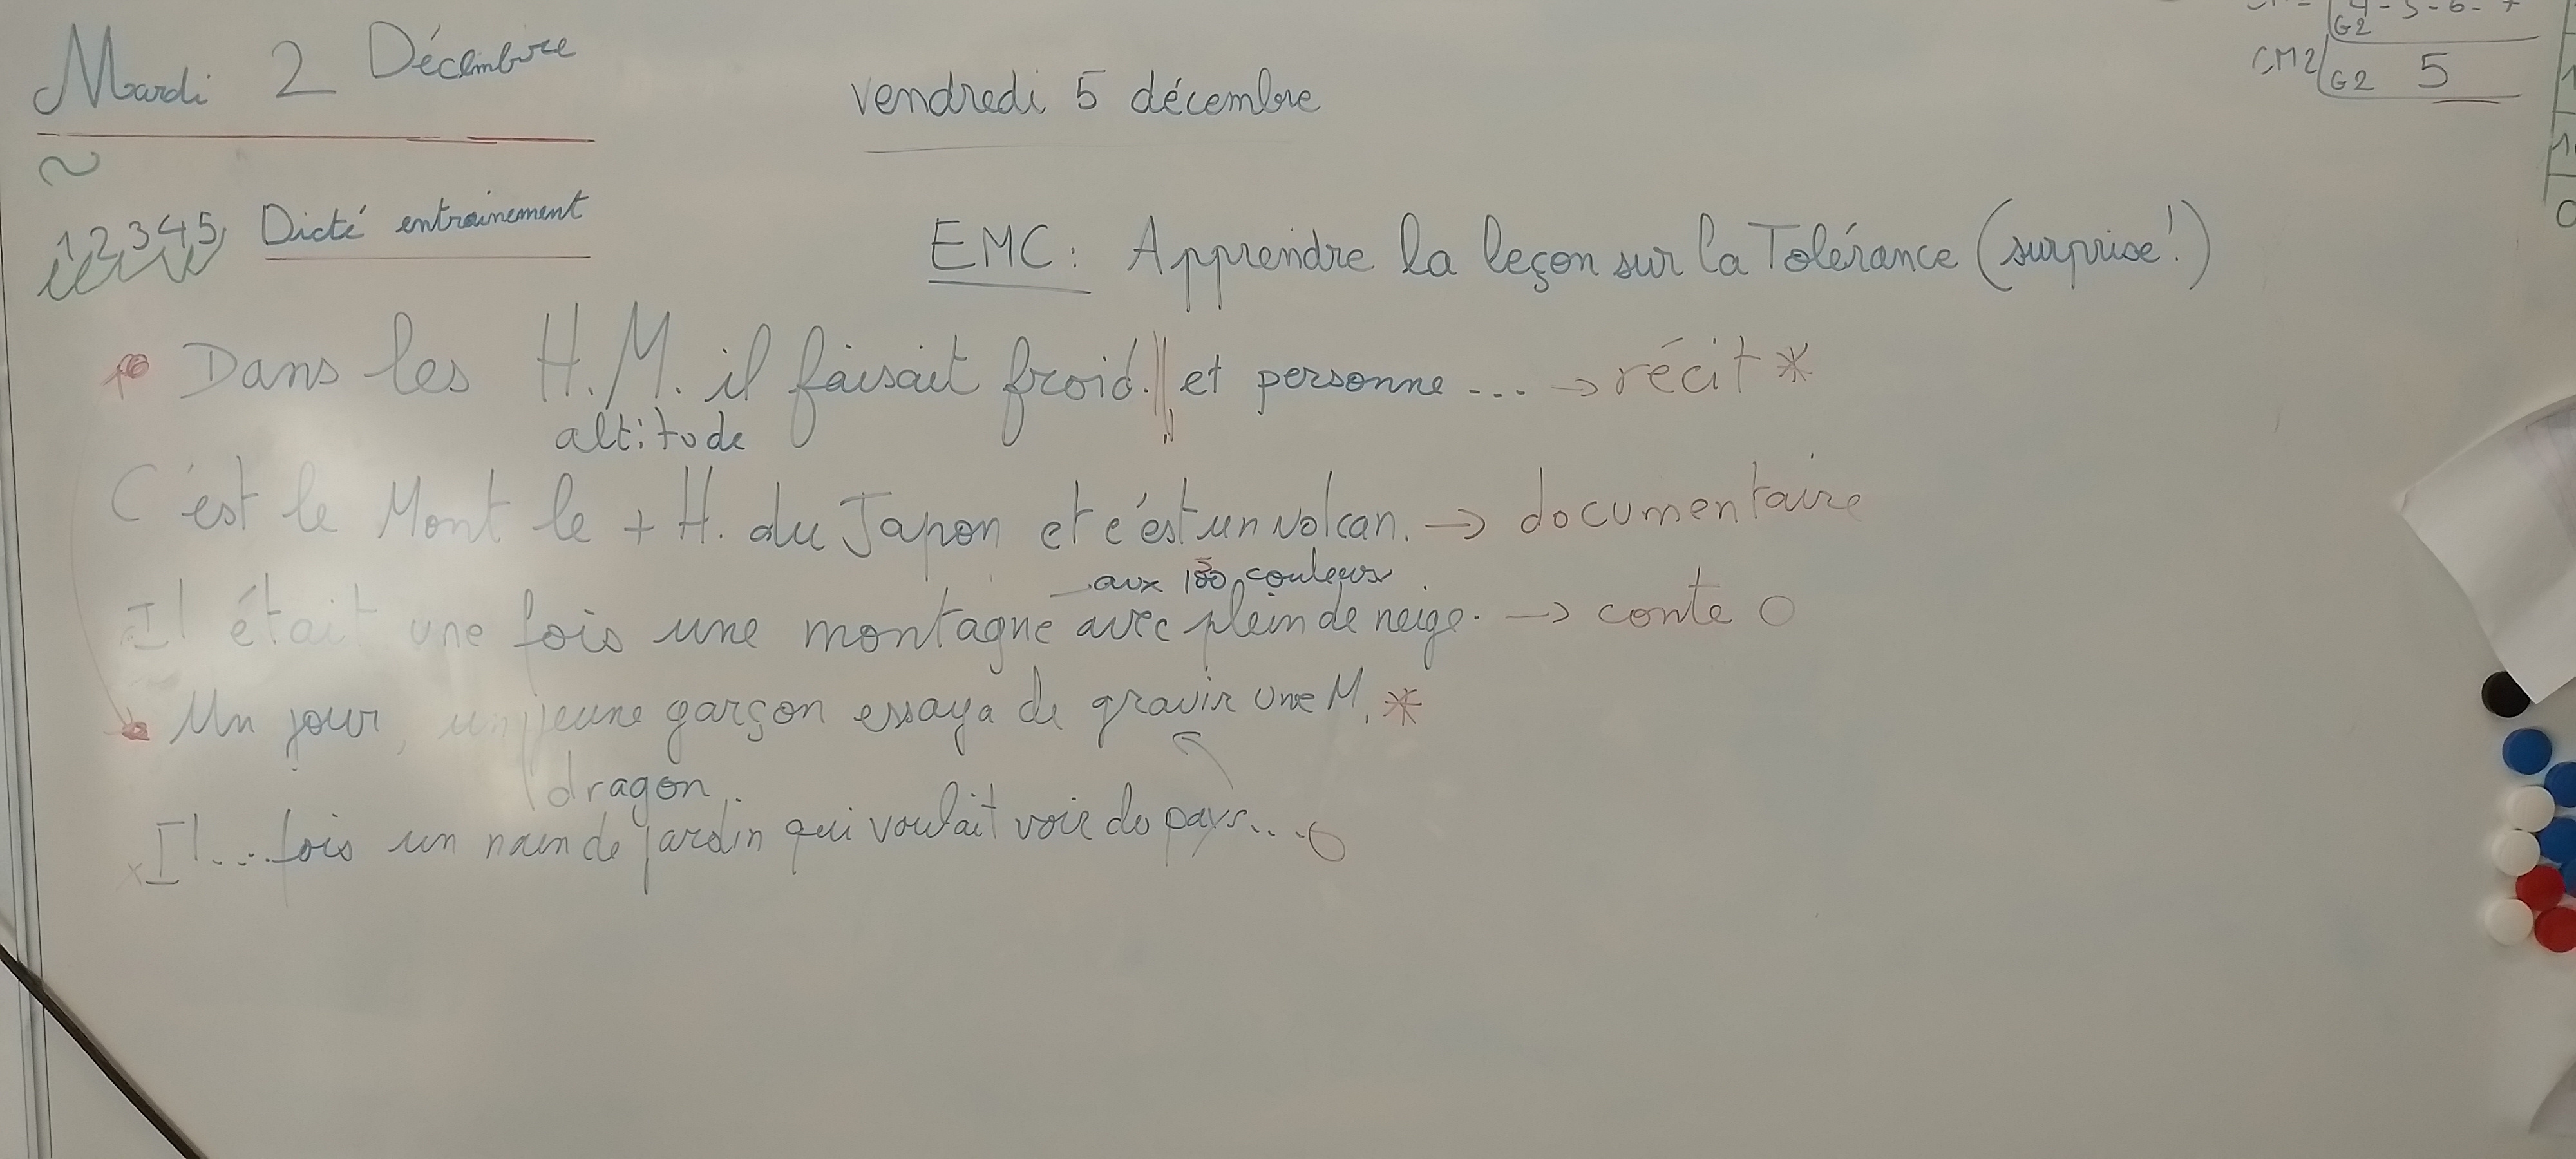 Mardi 2 Décembre
vendredi 5 décembre
4-5-6-7
G2
CM2 G2 5
1 2 3 4 5 Dicté entrainement
EMC: Apprendre la leçon sur la Tolérance (surprise!)
Dans les H.M. il faisait froid. et personne ... → récit *
altitude
C'est le Mont le + H. du Japon et c'est un volcan. → documentaire
aux 100 couleurs
Il était une fois une montagne avec plein de neige. → conte O
Un jour, un jeune garçon essaya de gravir une M. *
dragon
Il ... fois un nain de jardin qui voulait voir du pays... O